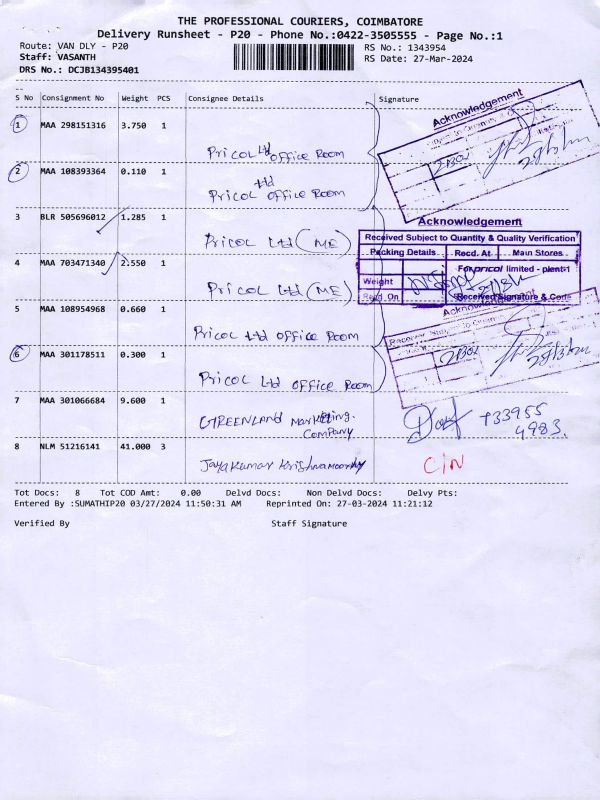 THE PROFESSIONAL COURIERS, COIMBATORE
Delivery Runsheet - P20 - Phone No.:0422-3505555 - Page No.:1
Route: VAN DLY - P20
RS No.: 1343954
Staff: VASANTH
RS Date: 27-Mar-2024
DRS No.: DCJB134395401
S No Consignment No Weight PCS Consignee Details Signature
1 MAA 298151316 3.750 1
Pricol Ltd Office Room
2 MAA 108393364 0.110 1
Pricol Ltd Office Room
3 BLR 505696012 1.285 1
Pricol Ltd (ME)
4 MAA 703471340 2.550 1
Pricol Ltd (ME)
5 MAA 108954968 0.660 1
Pricol Ltd Office Room
6 MAA 301178511 0.300 1
Pricol Ltd Office Room
7 MAA 301066684 9.600 1
Greenland Marketing
Company
8 NLM 51216141 41.000 3
Jayakumar Krishnamoorthy
Acknowledgement
Acknowledgement
Received Subject to Quantity & Quality Verification
Packing Details Recd. At Main Stores
For pricol limited - plant-1
Weight
Recd. On Received Signature & Code
Acknowledgement
733955
4983.
C/N
Tot Docs: 8 Tot COD Amt: 0.00 Delvd Docs: Non Delvd Docs: Delvy Pts:
Entered By :SUMATHIP20 03/27/2024 11:50:31 AM Reprinted On: 27-03-2024 11:21:12
Verified By Staff Signature